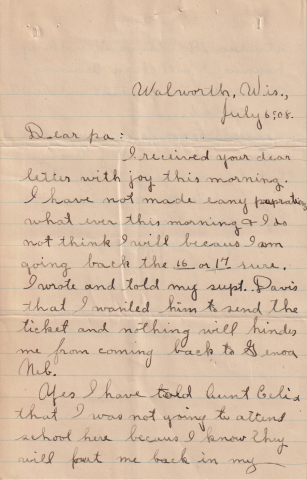 Walworth, Wis.,
July 6, 08.
Dear pa:
I received your dear
letter with joy this morning.
I have not made eany preprations
what ever this morning & I do
not think I will becaus I am
going back the 16 or 17 sure.
I wrote and told my supt. Davis
that I wanted him to send the
ticket and nothing will hinder
me from coming back to Genoa
Neb.
Yes I have told Aunt Celia
that I was not going to attend
school here becaus I know they
will put me back in my